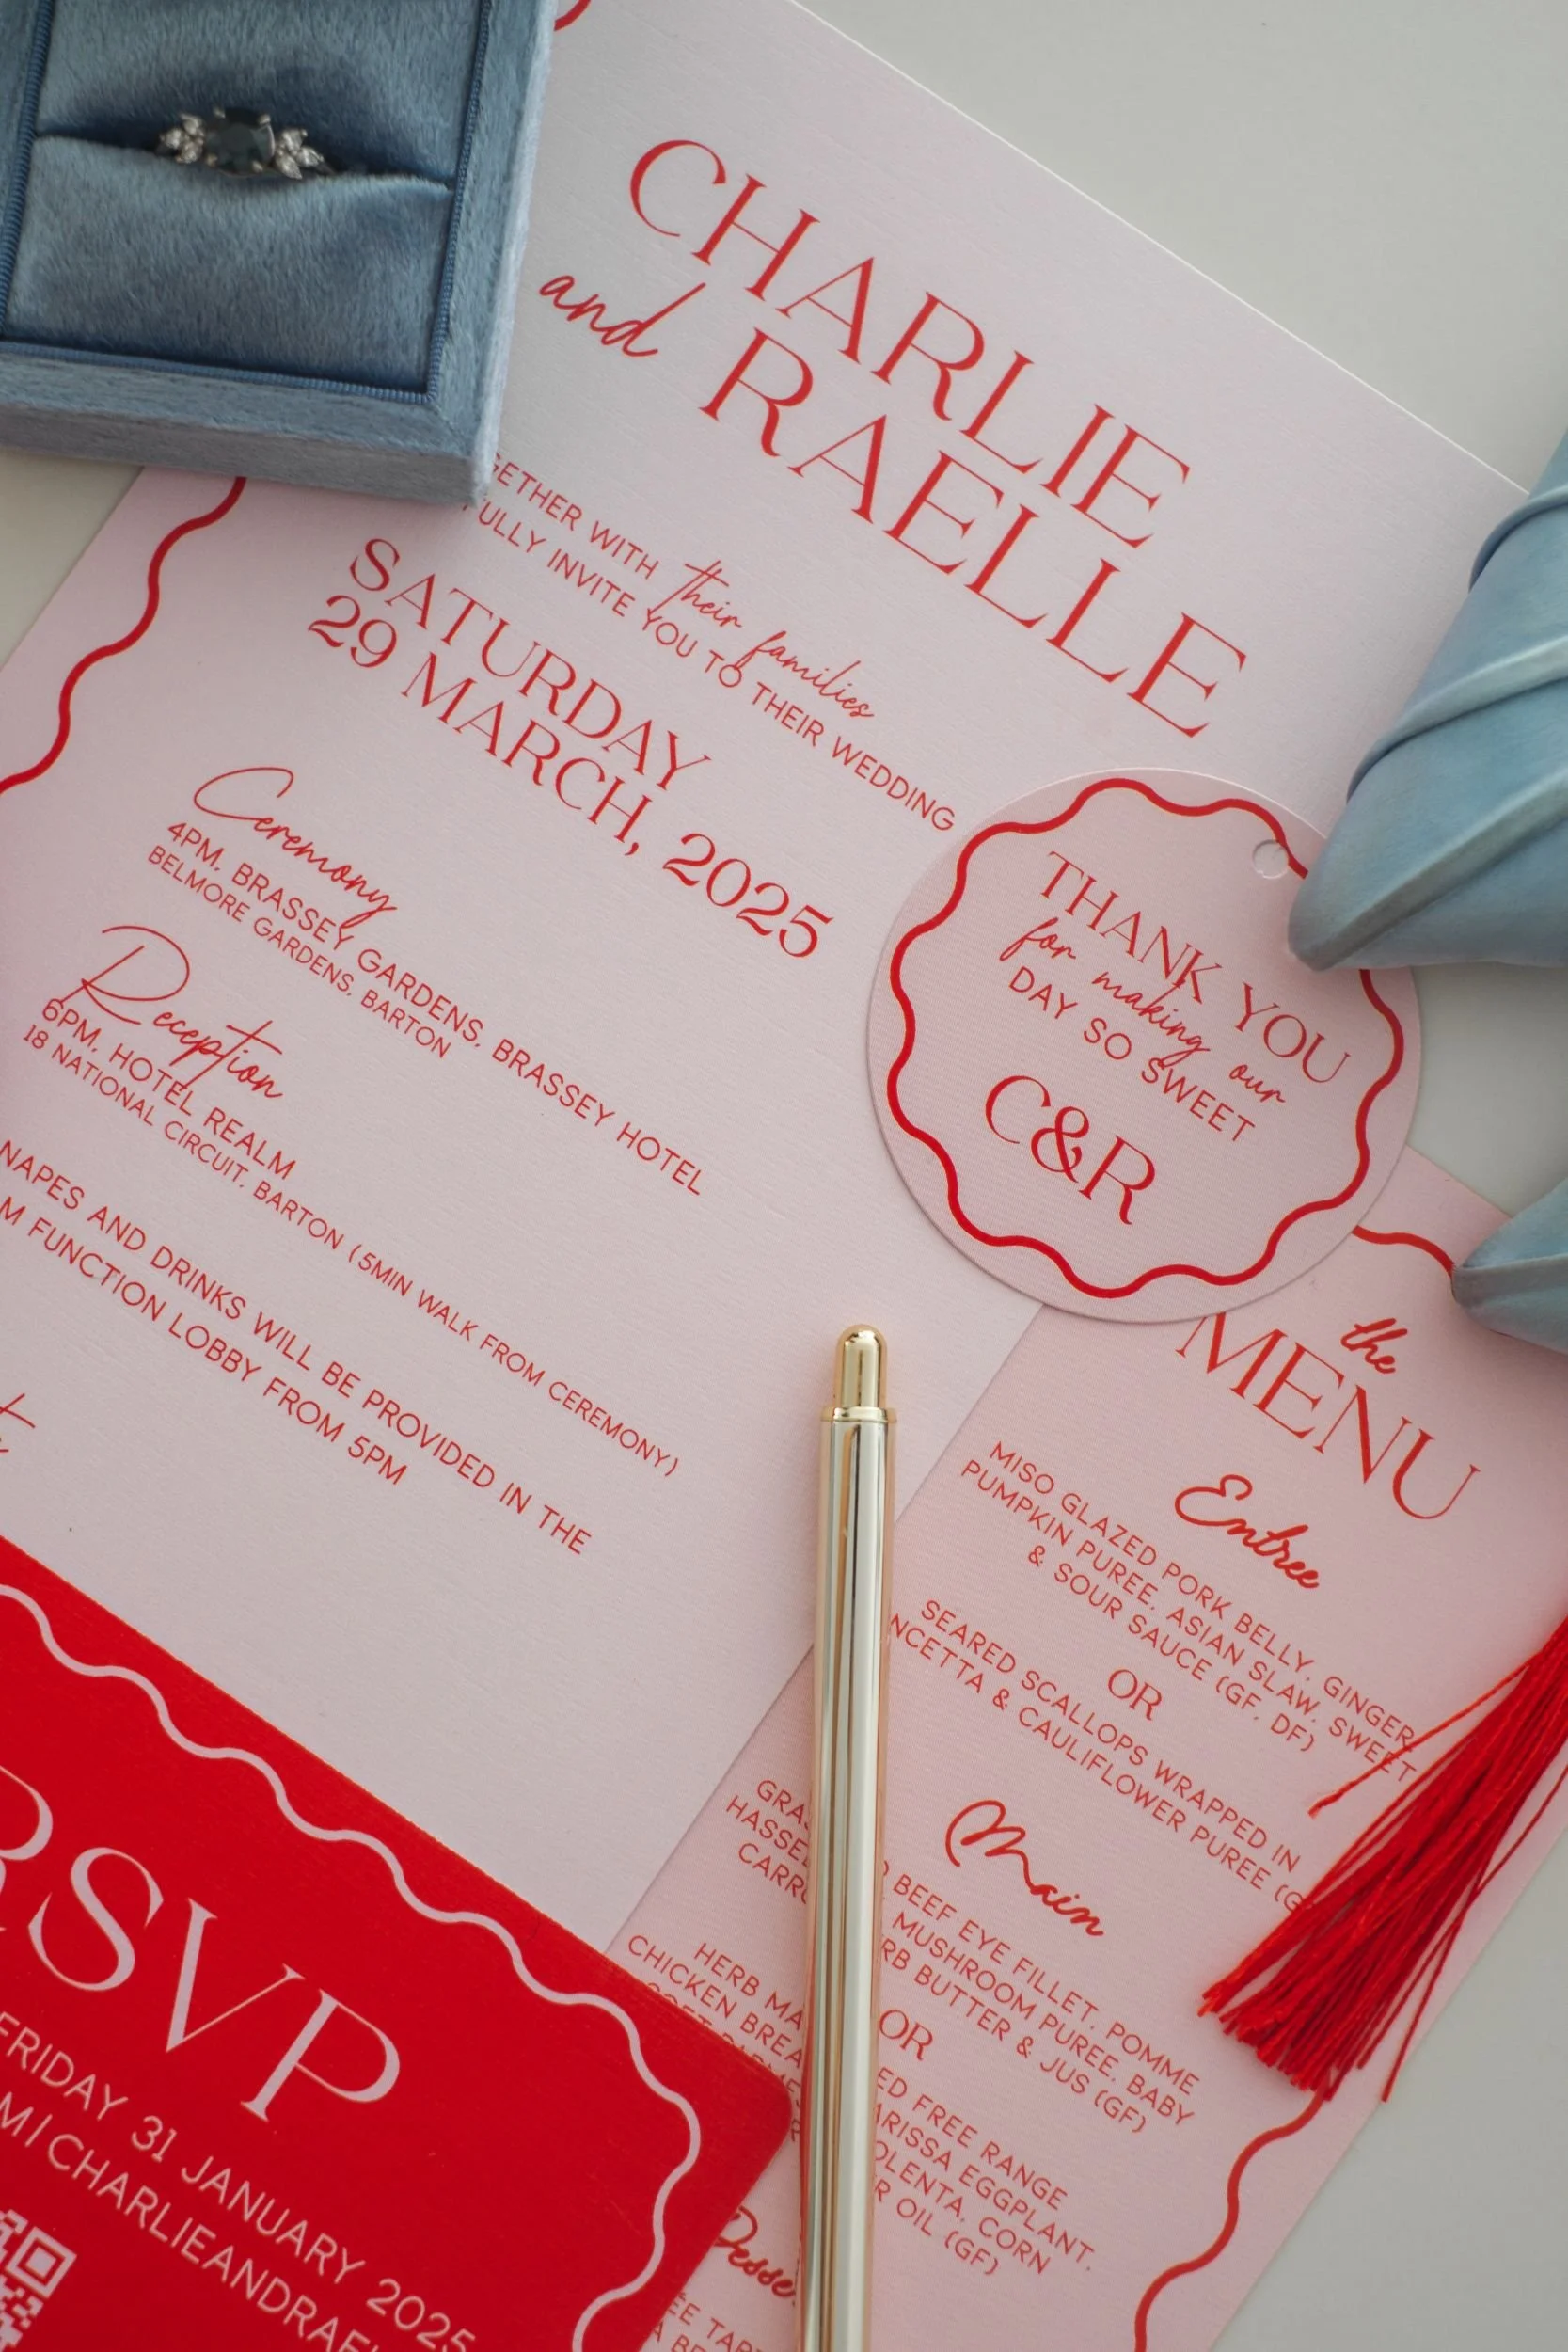 CHARLIE
and RAELLE
WITH their families
INVITE YOU TO THEIR WEDDING
SATURDAY
29 MARCH, 2025
Ceremony
4PM, BRASSEY GARDENS, BRASSEY HOTEL
BELMORE GARDENS, BARTON
Reception
6PM, HOTEL REALM
18 NATIONAL CIRCUIT, BARTON (5MIN WALK FROM CEREMONY)
AND DRINKS WILL BE PROVIDED IN THE
FUNCTION LOBBY FROM 5PM
THANK YOU
for making our
DAY SO SWEET
C&R
the
MENU
Entree
MISO GLAZED PORK BELLY, GINGER
PUMPKIN PUREE, ASIAN SLAW, SWEET
& SOUR SAUCE (GF, DF)
OR
SEARED SCALLOPS WRAPPED IN
& CAULIFLOWER PUREE
Main
BEEF EYE FILLET, POMME
MUSHROOM PUREE, BABY
BUTTER & JUS (GF)
OR
HERB FREE RANGE
CHICKEN EGGPLANT,
CORN
OIL (GF)
RSVP
FRIDAY 31 JANUARY 2025